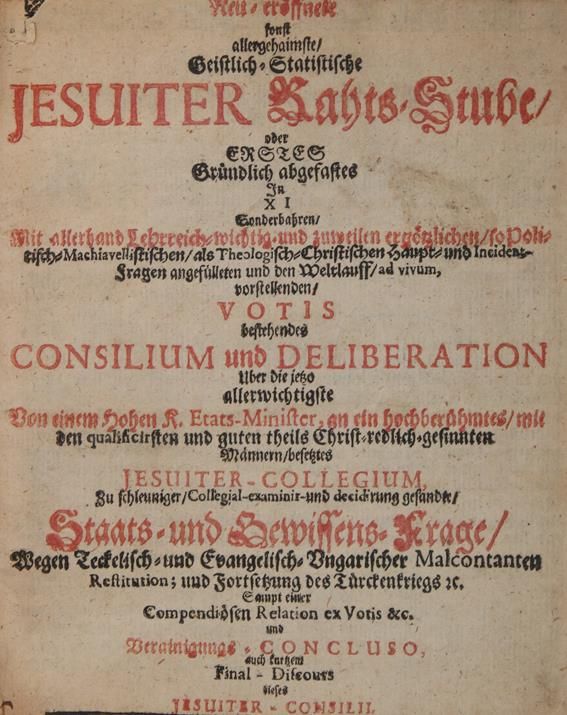 Neu-eröffnete
sonst
allergehaimste/
Geistlich-Statistische
JESUITER Rahts-Stube/
oder
ERSTES
Gründlich abgefastes
In
XI
Sonderbahren/
Mit allerhand Lehrreich-wichtig-und zuweilen ergötzlichen/ so Poli-
tisch-Machiavellistischen/ als Theologisch-Christischen Haupt-und Incident-
Fragen angefülleten und den Weltlauff/ ad vivum,
vorstellenden/
VOTIS
bestehendes
CONSILIUM und DELIBERATION
Uber die jetzo
allerwichtigste
Von einem Hohen K. Etats-Minister, an ein hochberühmtes/ mit
den qualificirsten und guten theils Christ-redlich-gesinnten
Männern/ besetztes
JESUITER-COLLEGIUM,
Zu schleuniger/ Collegial-examinir-und decidirung gesandte/
Staats-und Gewissens-Frage/
Wegen Teckelisch-und Evangelisch-Vngarischer Malcontanten
Restitution; und Fortsetzung des Türckenkriegs ꝛc.
Sampt einer
Compendiösen Relation ex Votis &c.
und
Verainigungs-CONCLUSO,
auch kurtzem
Final-Discours
dieses
JESUITER-CONSILII.